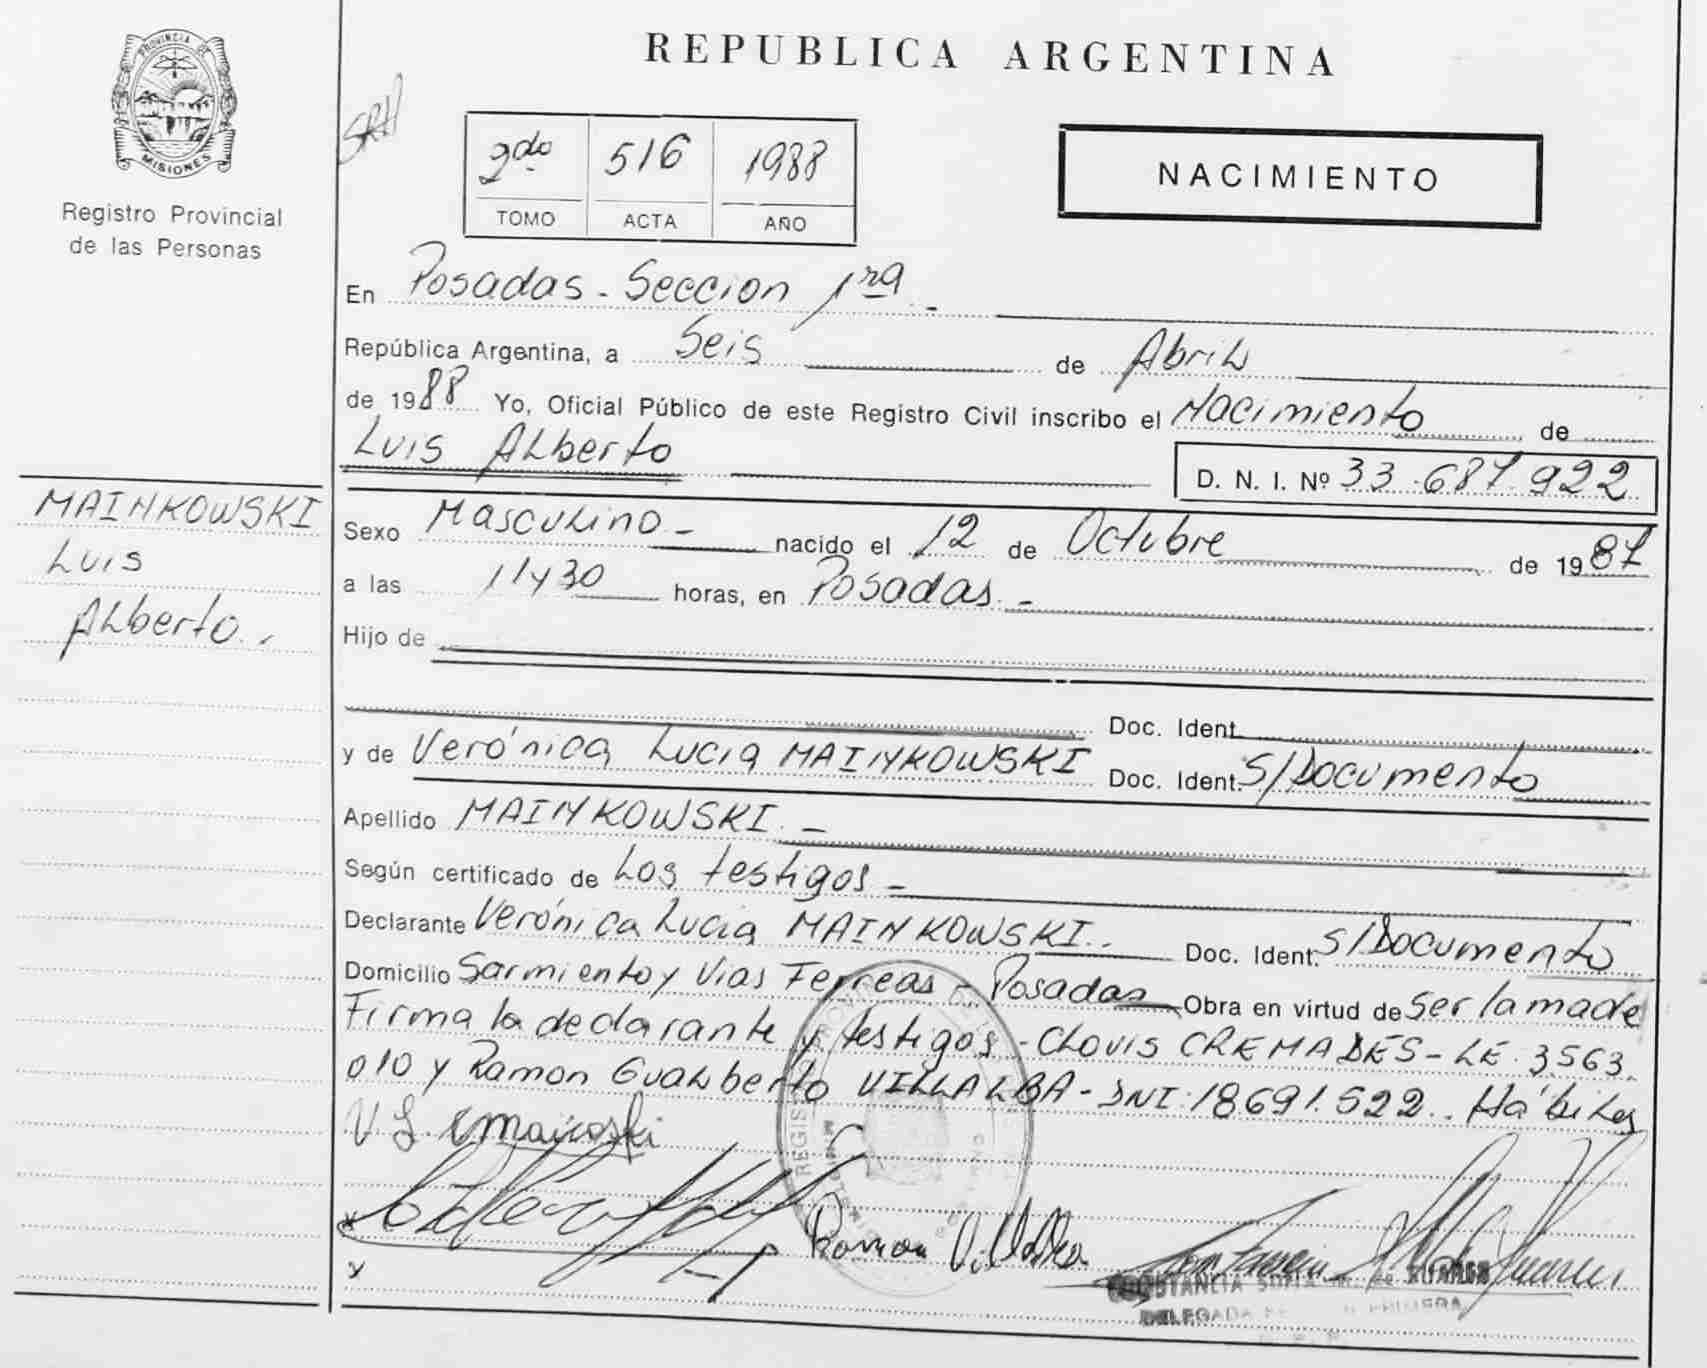 PROVINCIA DE
MISIONES
Registro Provincial
de las Personas
REPUBLICA ARGENTINA
2do TOMO
516 ACTA
1988 AÑO
NACIMIENTO
En Posadas - Seccion 1ra -
República Argentina, a Seis de Abril
de 1988 Yo, Oficial Público de este Registro Civil inscribo el Nacimiento de
Luis Alberto
D. N. I. Nº 33.687.922
MAINKOWSKI
Luis
Alberto.
Sexo Masculino - nacido el 12 de Octubre de 1987
a las 11y30 horas, en Posadas -
Hijo de
Doc. Ident.
y de Verónica Lucia MAINKOWSKI Doc. Ident. S/Documento
Apellido MAINKOWSKI. -
Según certificado de Los testigos -
Declarante Verónica Lucia MAINKOWSKI.. Doc. Ident. S/Documento
Domicilio Sarmiento y Vias Ferreas - Posadas Obra en virtud de Ser la madre
Firma la declarante y testigos - Clovis CREMADES - LE 3.563.
010 y Ramon Gualberto VILLALBA - DNI: 18691.522.. Hábiles
Ramon Villalba
DELEGADA PRIMERA